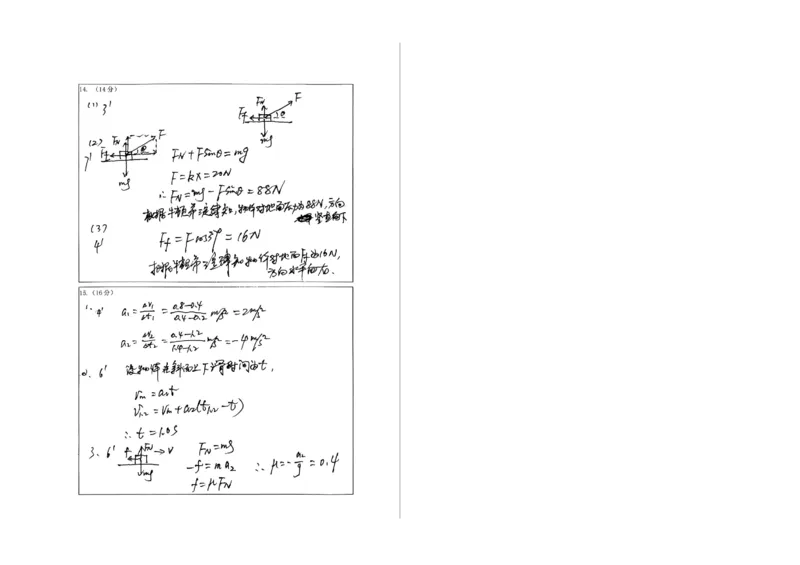 14. (14分)
(1) 3'
FN F
Ff θ
mg
(2) FN F
7' Ff θ
mg
FN+Fsinθ=mg
F=kx=20N
∴FN=mg-Fsinθ=88N
根据牛顿第三定律知,物体对地面压力为88N,方向
竖直向下
(3)
4'
Ff=Fcos37°=16N
根据牛顿第三定律知物体对地面Ff为16N,
方向水平向右.
15. (16分)
1. 4' a1=Δv1/Δt1=(0.8-0.4)/(0.4-0.2) m/s²=2m/s²
a2=Δv2/Δt2=(0.4-1.2)/(1.4-1.2) m/s²=-4m/s²
2. 6' 设物体在斜面上下滑时间为t,
vm=a1t
v1.2=vm+a2(t1.2-t)
∴t=1.0s
3. 6' f FN →v
mg
FN=mg
-f=ma2
f=μFN
∴μ=-a2/g=0.4